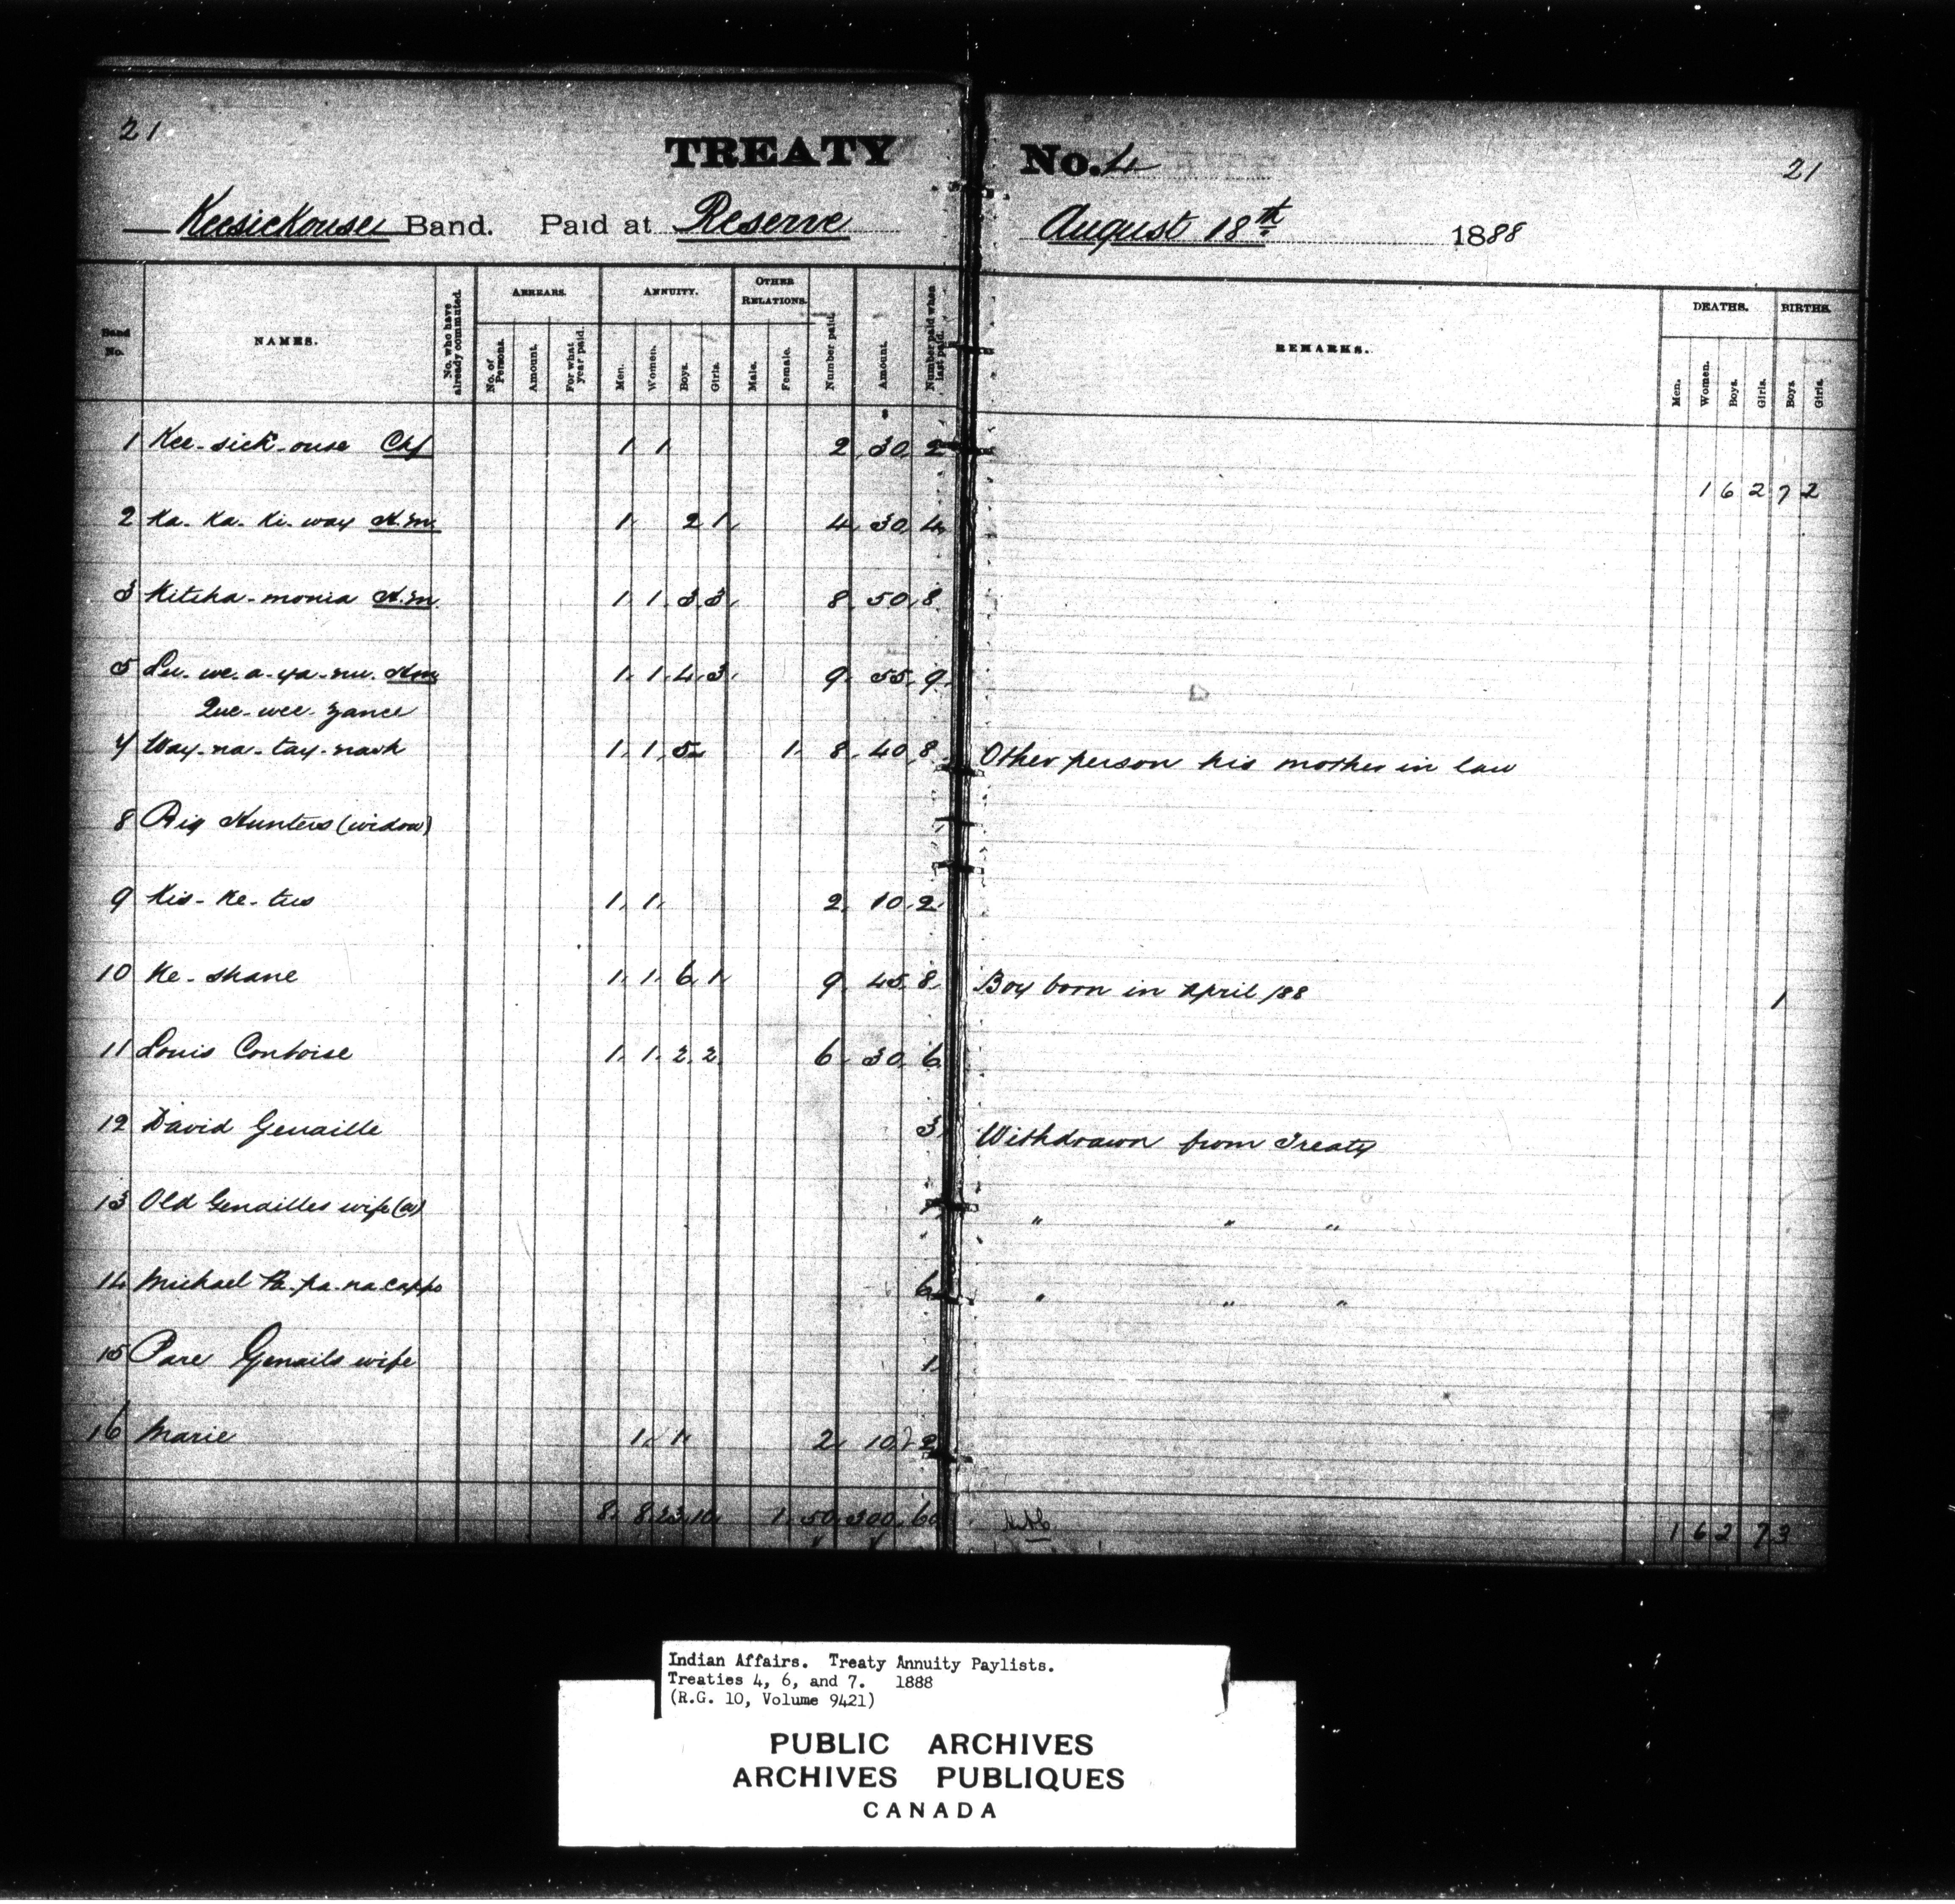 21
TREATY No. 4 21
Keesickouse Band. Paid at Reserve August 18th 1888
Band No. NAMES. No. who have already commuted. ARREARS. No. of Persons. Amount. For what year paid. ANNUITY. Men. Women. Boys. Girls. OTHER RELATIONS. Male. Female. Number paid. Amount. Number paid when last paid. REMARKS. DEATHS. Men. Women. Boys. Girls. BIRTHS. Boys. Girls.
1 Kee-sick-ouse Chf 1 1 2 30 2
1 6 2 7 2
2 Ka-Ka-Ki-way H.m. 1 2 1 4 30 4
3 Kitcha-monia H.m. 1 1 3 3 8 50 8
5 1 1 4 3 9 55 9
Que-wee-zance
7 Way-na-tay-nash 1 1 5 1 8 40 8 Other person his mother in law
8 Big Hunters (widow)
9 Kis-Ke-tus 1 1 2 10 2
10 Ke-shane 1 1 6 1 9 45 8 Boy born in April /88 1
11 Louis Contoise 1 1 2 2 6 30 6
12 David Genaille 3 Withdrawn from Treaty
13 Old Genailles wife (a) 1 " " "
14 Michael Pa-pa-na-cappo 6 " " "
15 Pare Genails wife 1
16 Marie 1 1 2 10 2
8 8 23 10 1 50 300 60 1 6 2 7 3
Indian Affairs. Treaty Annuity Paylists.
Treaties 4, 6, and 7. 1888
(R.G. 10, Volume 9421)
PUBLIC ARCHIVES
ARCHIVES PUBLIQUES
CANADA